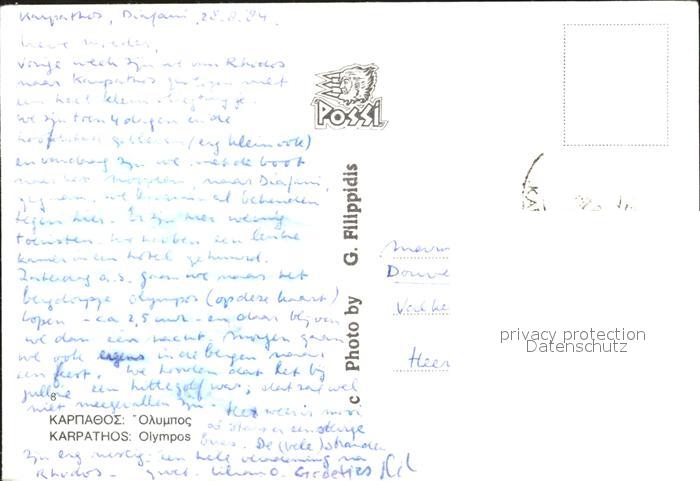 Karpathos, Diafani, 28.8.84.
Lieve moeder,
Vorige week zijn we van Rhodos
naar Karpathos gevlogen met
een heel klein vliegtuigje.
We zijn toen 4 dagen in de
hoofdstad gebleven (erg klein ook)
en vandaag zijn we met de boot
naar het noorden, naar Diafani,
gegaan. We
tegen hier. Er zijn hier weinig
toeristen. We hebben een leuke
kamer in een hotel gehuurd.
Zaterdag a.s. gaan we naar het
bergdorpje Olympos (op deze kaart)
lopen - ca 2,5 uur - en daar blijven
we dan één nacht. Morgen gaan
we ook ergens in de bergen naar
een feest. We hoorden dat het bij
jullie een hittegolf was; dat zal wel
niet meegevallen zijn. Het weer is mooi
De (vele) stranden
zijn erg rustig: een hele verademing na
Rhodos.
8
ΚΑΡΠΑΘΟΣ: Ὄλυμπος
KARPATHOS: Olympos
POSSI
c Photo by G. Filippidis
Mevr
Douwe
Heer
privacy protection
Datenschutz